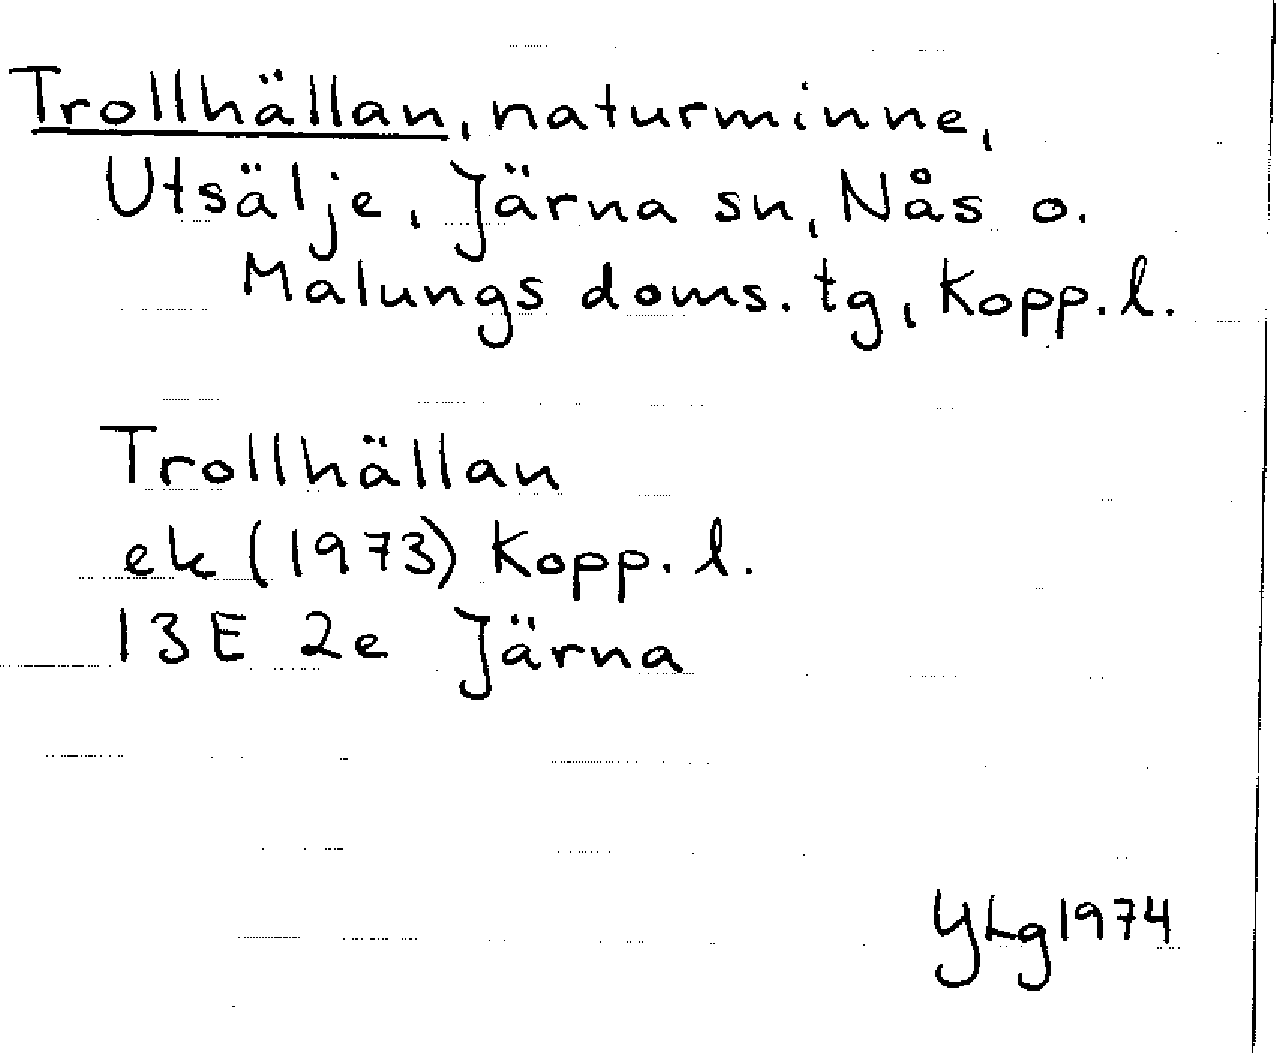 Trollhällan, naturminne,
Utsälje, Järna sn, Nås o.
Malungs doms. tg, Kopp. l.
Trollhällan
ek (1973) Kopp. l.
13E 2e Järna
YLg 1974